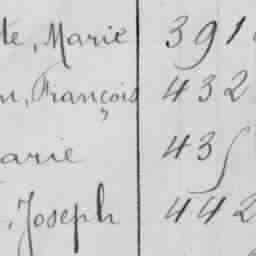 te, Marie 391
n, François 432
arie 435
, Joseph 442